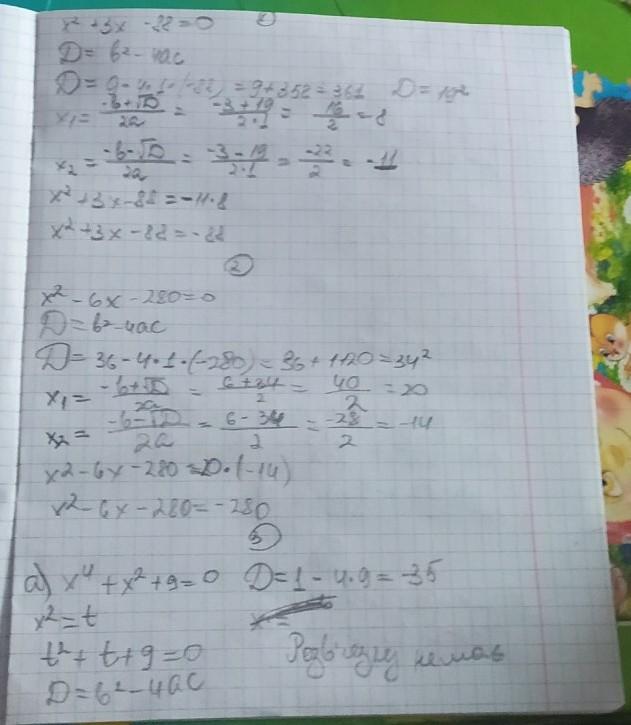 x² + 3x - 88 = 0 ①
D = b² - 4ac
D = 9 - 4·1·(-88) = 9 + 352 = 361 D = 19²
x₁ = (-b+√D)/2a = (-3+19)/2·1 = 16/2 = 8
x₂ = (-b-√D)/2a = (-3-19)/2·1 = -22/2 = -11
x² + 3x - 88 = -11·8
x² + 3x - 88 = -88
②
x² - 6x - 280 = 0
D = b² - 4ac
D = 36 - 4·1·(-280) = 36 + 1120 = 34²
x₁ = (-b+√D)/2a = (6+34)/2 = 40/2 = 20
x₂ = (-b-√D)/2a = (6-34)/2 = -28/2 = -14
x² - 6x - 280 = 20·(-14)
x² - 6x - 280 = -280
③
а) x⁴ + x² + 9 = 0 D = 1 - 4·9 = -35
x² = t
t² + t + 9 = 0 Розв'язку немає
D = b² - 4ac